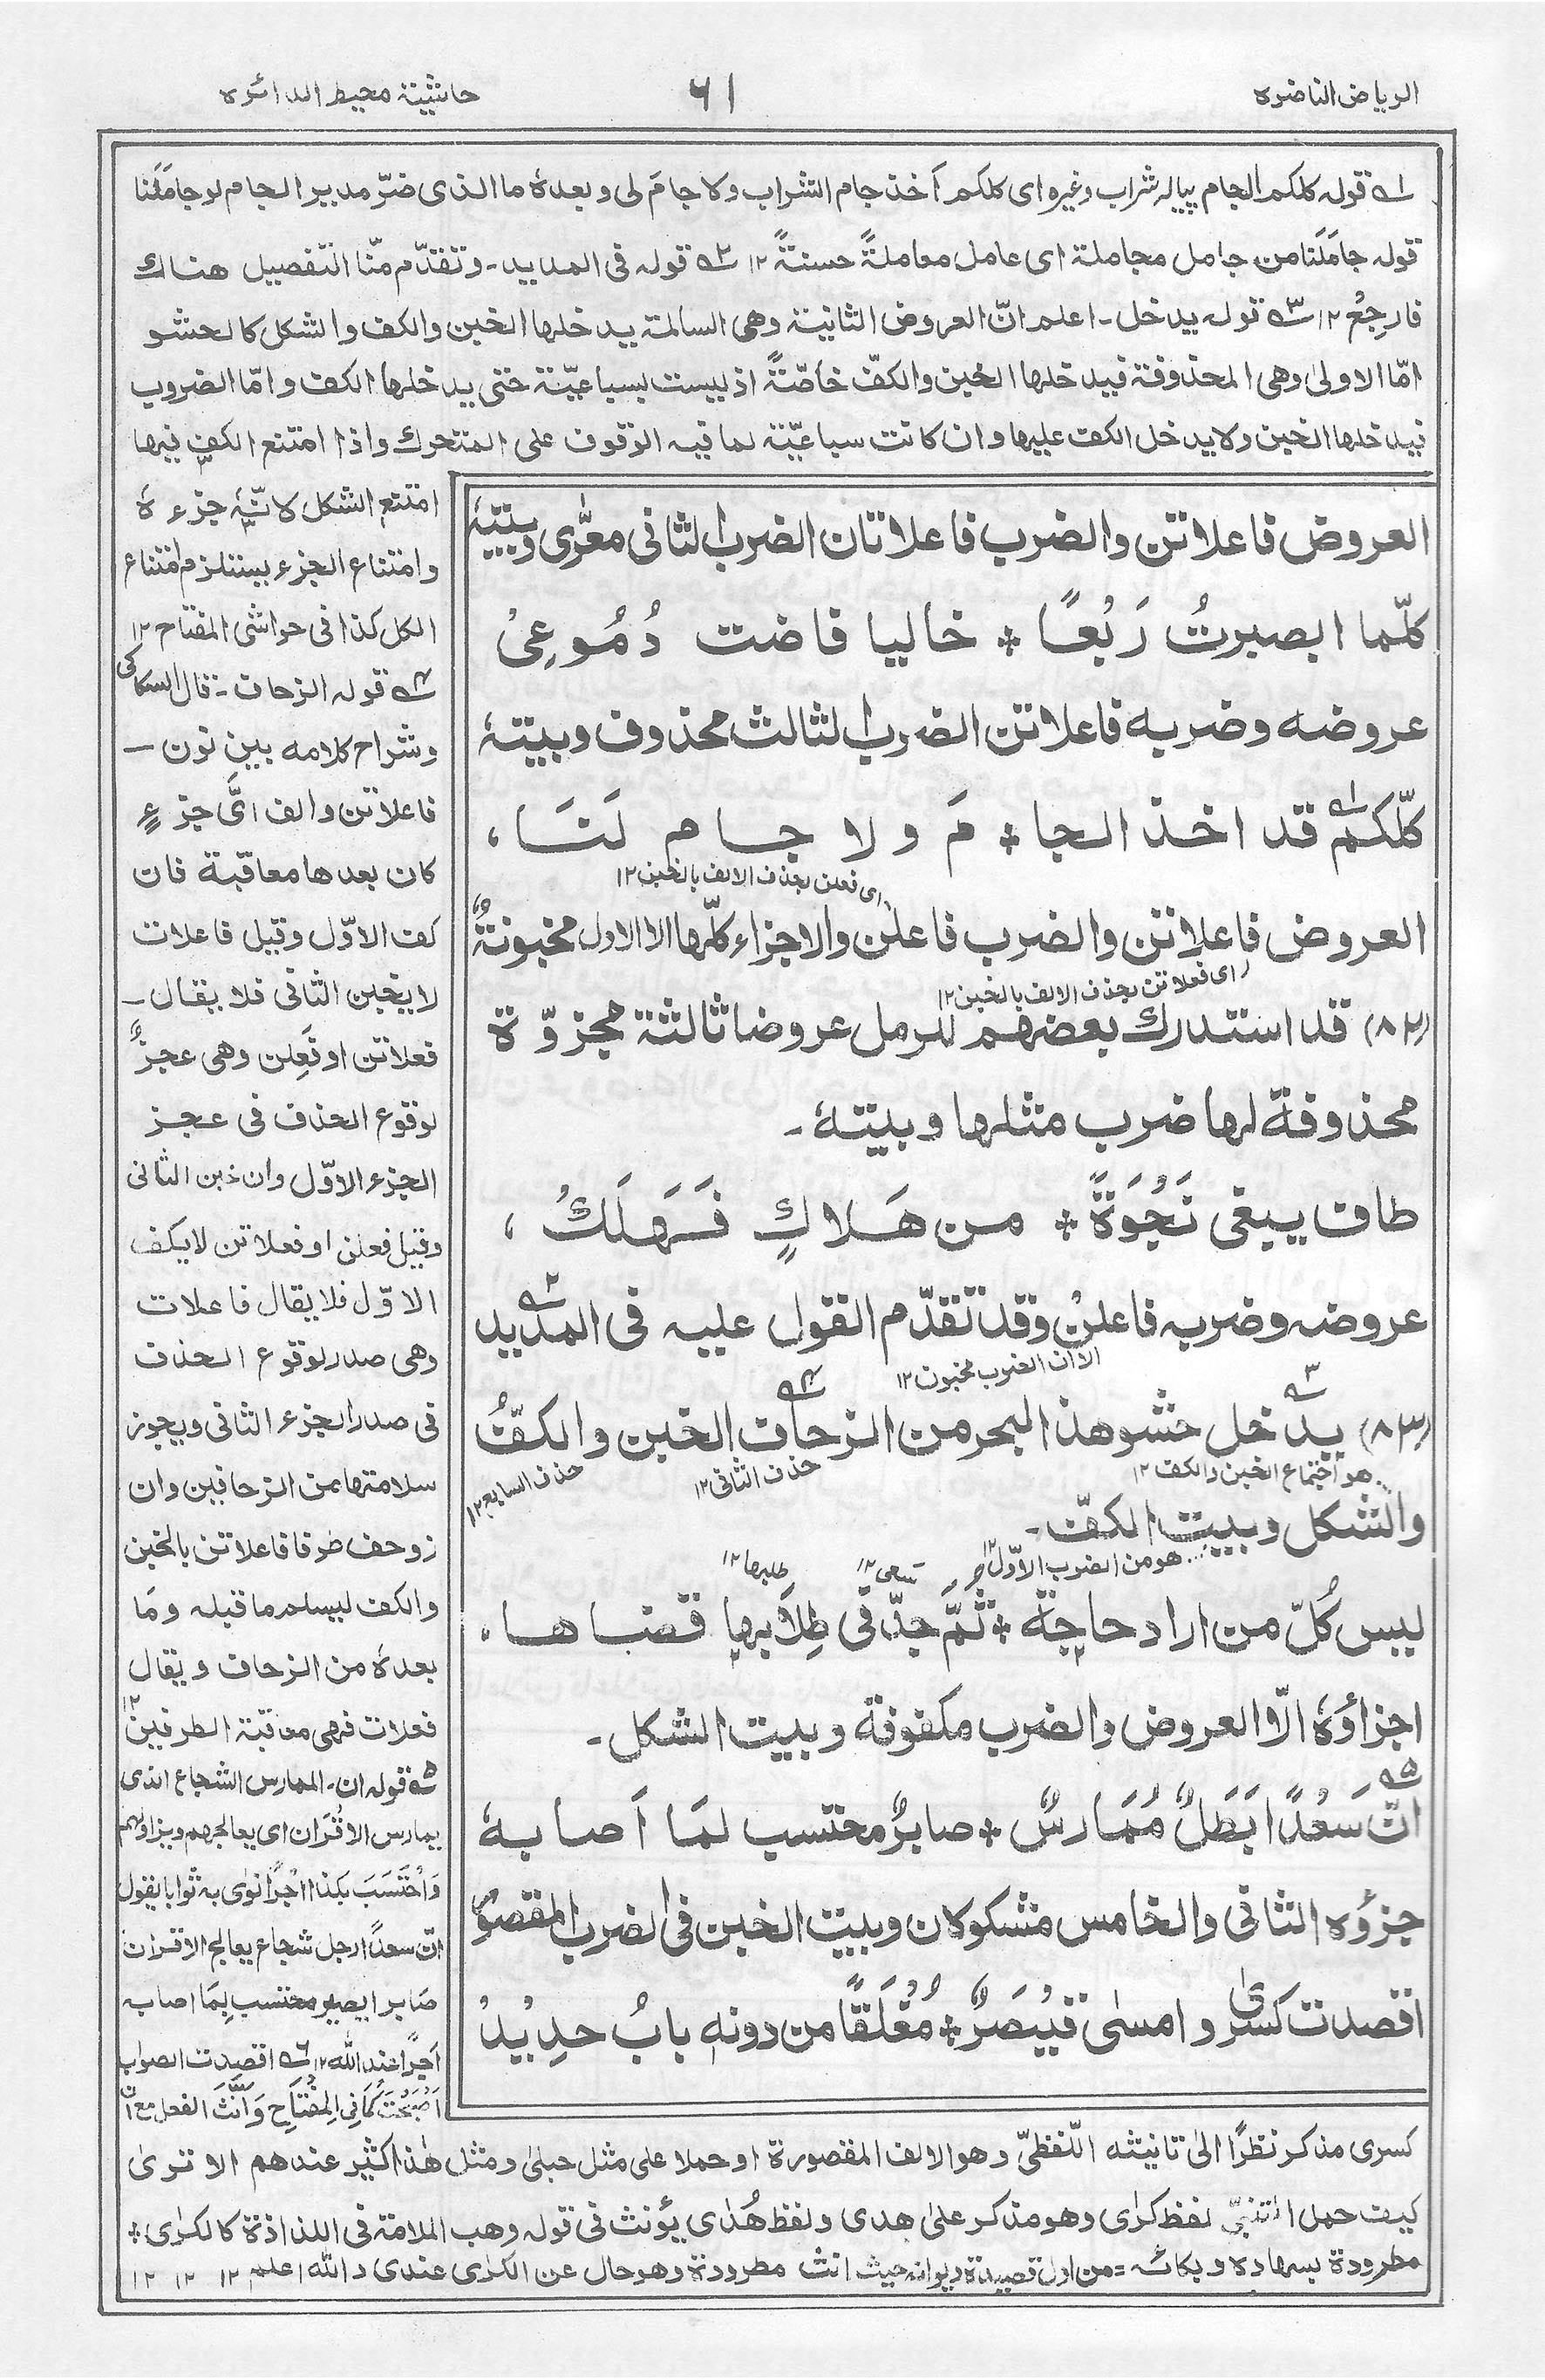 الرياض الناضرہ
٦١
حاشیۃ محیط الدائرہ
لہ قولہ کلکم الجام پیالہ شراب وغیرہ ای کلکم اَخذ جام الشراب ولا جامَ لی وبعدہٗ ما الذی ضرّ مدیر الجام لو جامَلَنا
قولہ جامَلَنا من جامل مجاملۃ ای عامل معاملۃً حسنۃً ۱۲ ۲ہ قولہ فی المدید۔ وتقدّم منّا التفصیل ھناك
فارجِعْ ۱۲ ۳ہ قولہ یدخل۔ اعلم انّ العروض الثانیۃ وھی السالمۃ یدخلھا الخبن والکف والشکل کالحشو
امّا الاولیٰ وھی المحذوفۃ فیدخلھا الخبن والکفّ خاصّۃً اذ لیست بسباعیّۃ حتی یدخلھا الکف وامّا الضروب
فیدخلھا الخبن ولا یدخل الکف علیھا وان کانت سباعیّۃ لما فیہ الوقوف علی المتحرك واذا امتنع الکف فیھا
امتنع الشکل لانّہٗ جزءہٗ
وامتناع الجزء یستلزم امتناع
الکل کذا فی حواشی المفتاح ۱۲
۴ہ قولہ الزحاف۔ قال السکاکی
وشراح کلامہ بین نون —
فاعلاتن والف ایّ جزءٍ
کان بعدھا معاقبۃ فان
کف الاوّل وقیل فاعلات
لا یخبن الثانی فلا یقال —
فعلاتن او فَعِلن وھی عجزٌ
لوقوع الحذف فی عجز
الجزء الاوّل وان خبن الثانی
وقیل فعلن او فعلاتن لا یکف
الاوّل فلا یقال فاعلات
وھی صدر لوقوع الحذف
فی صدر الجزء الثانی ویجوز
سلامتھا من الزحافین وان
زوحف طرفا فاعلاتن بالخبن
والکف لیسلم ما قبلہ ومَا
بعدہٗ من الزحاف ویقال
فعلات فھی معاقبۃ الطرفین ۱۲
۵ہ قولہ ان۔ الممارس الشجاع الذی
یمارس الاقْرَان ای یعالجھم ویزاولھم
وَاحْتَسَبَ بکذا اجْرًا نوی بہ ثوابا یقول
انّ سعدًا رجل شجاع یعالج الاقران
صَابرا یصیر محتسب لِمَا اصابہ
اَجرًا عند اللہ ۱۲ ٦ہ اقصدت الصواب
اَصْبَحَتْ کَمَا فِی الْمِفْتَاحِ وَاَنَّثَ الفعل مع انّ
العروض فاعلاتن والضرب فاعلاتان الضرب الثانی معرّٰی وبیتہٗ
کلّما ابصرتُ رَبْعًا ✤ خالیا فاضت دُمُوعِیْ
عروضہ وضربہ فاعلاتن الضرب الثالث محذوف وبیتہٗ
کلّکم لہ قد اخذ الجا ✤ مَ ولا جام لَنَا ،
ای فعلن بحذف الالف بالخبن ۱۲
العروض فاعلاتن والضرب فاعلن والاجزاء کلّھا الا الاول مخبونۃٌ
ای فعلاتن بحذف الالف بالخبن ۱۲
(۸۲) قد استدرك بعضھم للرمل عروضا ثالثۃ مجزوّۃ
محذوفۃ لھا ضرب مثلھا وبیتہٗ۔
طاف یبغی نَجْوَۃً ✤ من ھَلاكٍ فَھَلَكْ ،
عروضہ وضربہ فاعلنْ وقد تقدّم القول علیہ فی المدید ۲ہ
الا ان الضرب مخبون ۱۲
(۸۳) یدخل ۳ہ حشو ھذ البحر من الزحاف ۴ہ الخبن والکفّ
ھو اجتماع الخبن والکف ۱۲
حذف الثانی ۱۲
حذف السابع ۱۲
والشکل وبیت الکفّ۔
ھو من الضرب الاوّل ۱۲
تسعی ۱۲
طلبھا ۱۲
لیس کُلّ من اراد حاجۃ ✤ ثُمَّ جدّ فی طِلَابھا قضاھا،
اجزاؤہٗ الّا العروض والضرب مکفوفۃ وبیت الشکل۔
۵ہ
انّ سَعْدًا بَطَلٌ مُمَارسٌ ✤ صابرٌ محتسب لمَا اَصابہٗ
جزؤہ الثانی والخامس مشکولان وبیت الخبن فی الضرب المقصور
اقصدت کسرٰی وامسٰی قیْصَرٌ ✤ مُغْلَقًا من دونہٖ بابُ حدِیْدْ
کسری مذکر نظرًا الیٰ تانیثہ اللّفظیّ وھو الالف المقصورۃ او حملا علی مثل حبلیٰ ومثل ھٰذا کثیر عندھم الا تریٰ
کیف حمل المتنبیّ لفظ کرٰی وھو مذکر علیٰ ھدی ولفظ ھُدٰی یؤنث فی قولہ وھب الملامۃ فی اللذاذۃ کالکرٰی ✤
مطرودۃ بسھادہ وبکائہ = من اول قصیدۃ دیوانہ حیث انث مطرودۃ وھو حال عن الکرٰی عندی واللہ اعلم ۱۲ ۱۲ ۱۲